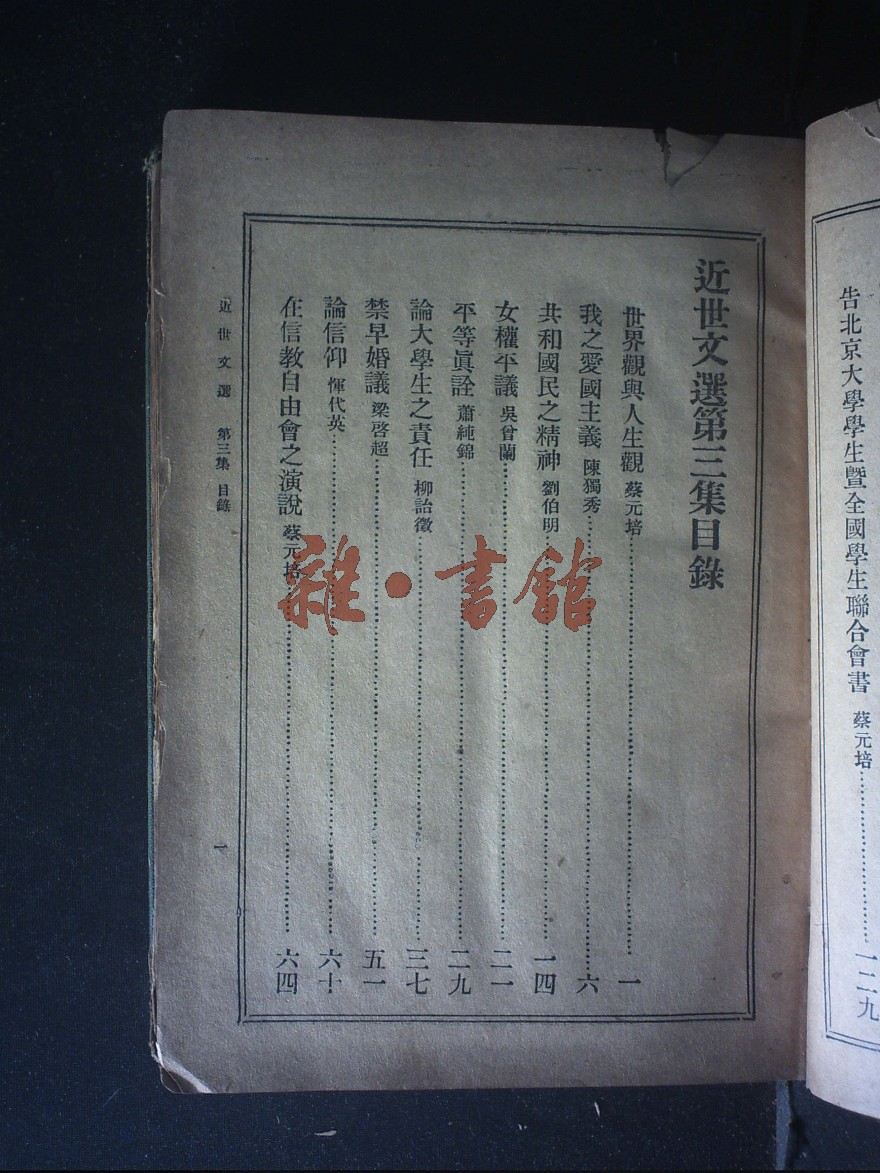 告北京大學學生暨全國學生聯合會書 蔡元培 一二九
近世文選第三集目錄
世界觀與人生觀 蔡元培 一
我之愛國主義 陳獨秀 六
共和國民之精神 劉伯明 一四
女權平議 吳曾蘭 二一
平等眞詮 蕭純錦 二九
論大學生之責任 柳詒徵 三七
禁早婚議 梁啓超 五一
論信仰 惲代英 六十
在信教自由會之演說 蔡元培 六四
近世文選 第三集 目錄 一
雜·書館